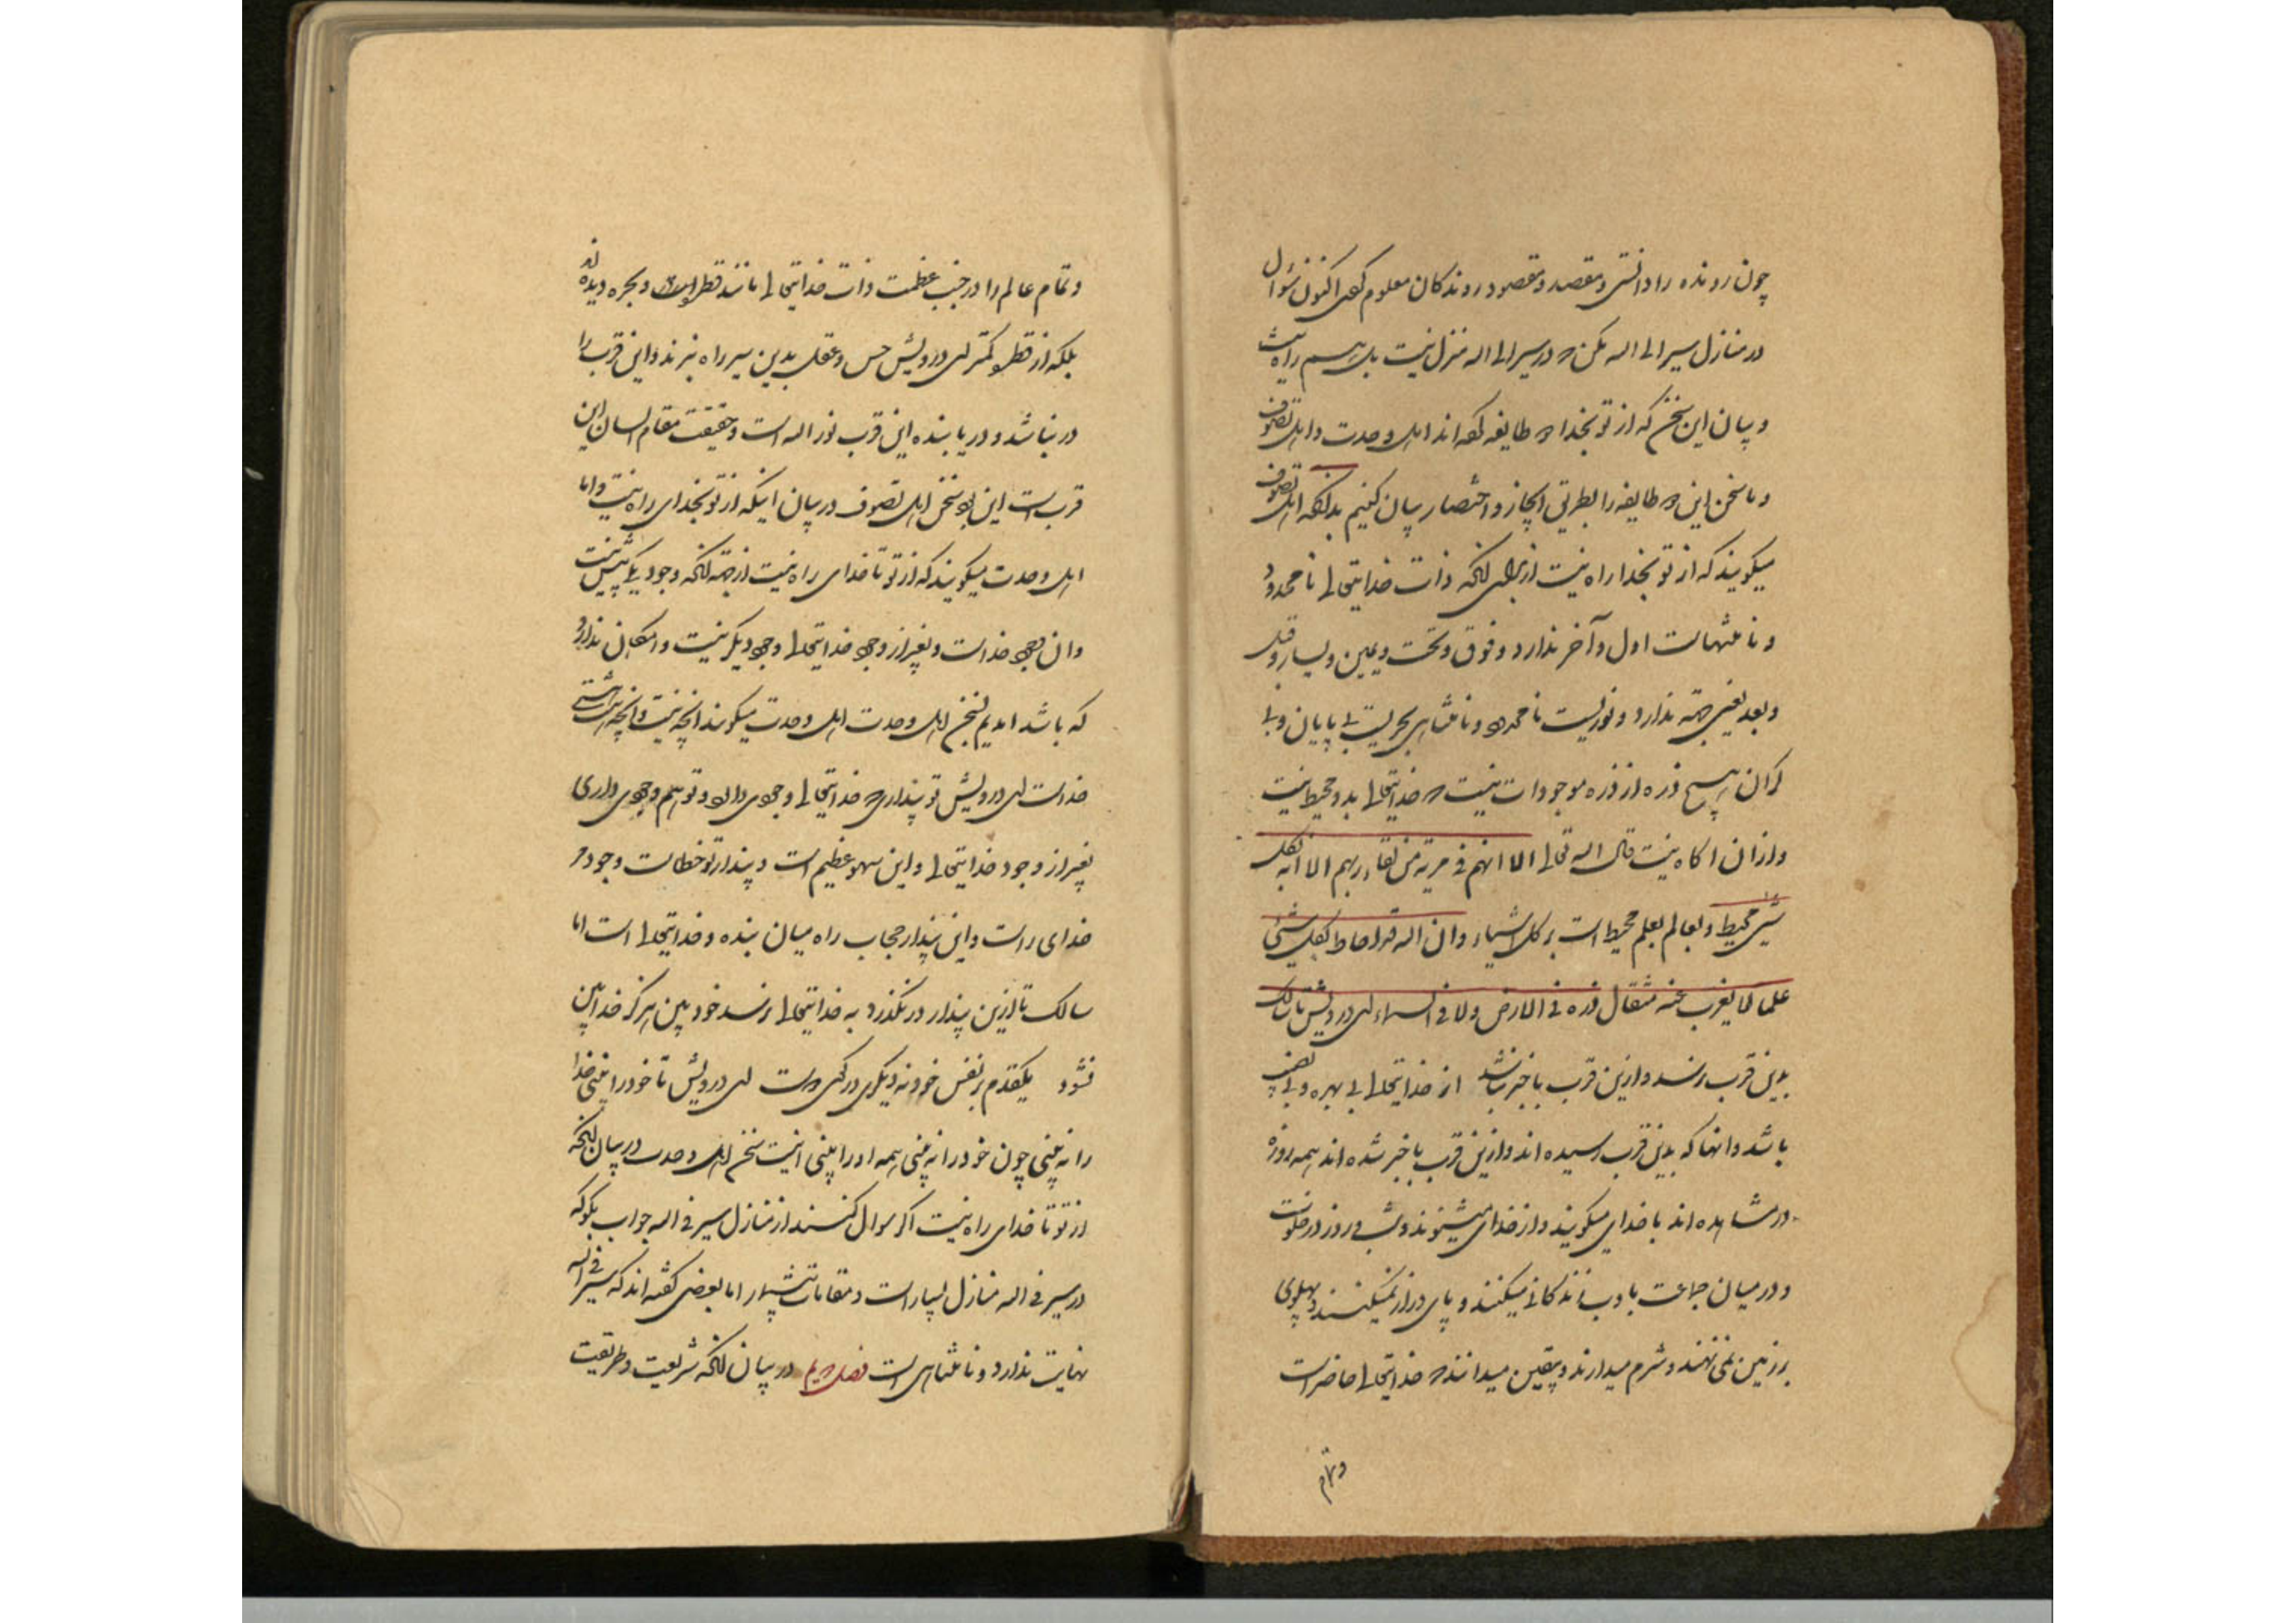 چون رونده را دانستی و مقصد و مقصود روندکان معلوم کردی اکنون سؤال
در منازل سیر الی الله مکن که در سیر الی الله منزل نیست بلکه هم راه نیست
و بیان این سخن که از تو بخدا دو طایفه کفته اند اهل وحدت و اهل تصوف
و ما سخن این دو طایفه را بطریق ایجاز و اختصار بیان کنیم بدانکه اهل تصوف
میکویند که از تو بخدا راه نیست از برای انکه ذات خدایتعالی نامحدود
و نامتهاست اول و آخر ندارد و فوق و تحت و یمین و یسار و قبل
و بعد یعنی جهة ندارد و نوریست نامحدود و نامتناهی بحریست بی پایان و بی
کران هیچ ذره از ذره موجودات نیست که خدایتعالی بدو محیط نیست
و از ان اکاه نیست قال الله تعالی الا انهم فی مریة من لقاء ربهم الا انه بکل
شیئ محیط و بعالم بعلم محیط است بر کل اشیاء و ان الله قد احاط بکل شئ
علما لا یغرب عنه مثقال ذره فی الارض ولا فی السماء ای درویش تا سالک
بدین قرب نرسد و ازین قرب باخبر نباشد از خدایتعالی بی بهره و بی نصیب
باشد و انها که بدین قرب رسیده اند و ازین قرب باخبر شده اند همه روزه
در مشاهده اند با خدای میکویند و از خدای میشنوند و شب و روز در خلوت
و در میان جماعت با ادب زندکانی میکنند و پای دراز نمیکنند و پهلوی
بر زمین نمی نهند و شرم میدارند و بیقین میدانند که خدایتعالی حاضر است
و تمام
و تمام عالم را در جنب عظمت ذات خدایتعالی مانند قطره و بحره دیده اند
بلکه از قطره کمتر ای درویش حس و عقل بدین سیر راه نبرند و این قرب را
در نیابند و دریابنده این قرب نور الله است و حقیقت مقام انسان این
قربست این بود سخن اهل تصوف در بیان اینکه از تو بخدای راه نیست و اما
اهل وحدت میکویند که از تو تا خدای راه نیست از جهة انکه وجود یکی بیش نیست
و ان وجود خداست و بغیر از وجود خدایتعالی وجود دیکر نیست و امکان ندارد
که باشد امدیم بسخن اهل وحدت اهل وحدت میکویند انچه نیست و انچه هست هستی
خداست ای درویش تو پنداری که خدایتعالی وجودی دارد و تو هم وجودی داری
بغیر از وجود خدایتعالی و این سهو عظیم است و پندار تو خطاست وجود مر
خدای راست و این پندار حجاب راه میان بنده و خدایتعالی است اما
سالک تا ازین پندار در نکذرد به خدایتعالی نرسد خود بین هرکز خدا بین
نشود یکقدم بر نفس خود نه دیکری در کوی دوست ای درویش تا خود را بینی خدا
را نه بینی چون خود را نه بینی همه او را بینی اینست سخن اهل وحدت در بیان انکه
از تو تا خدای راه نیست اکر سوال کنند از منازل سیر فی الله جواب بکو که
در سیر فی الله منازل بسیار است و مقامات بیشمار اما بعضی کفته اند که سیر فی الله
نهایت ندارد و نامتناهی است فصل دویم در بیان انکه شریعت و طریقت